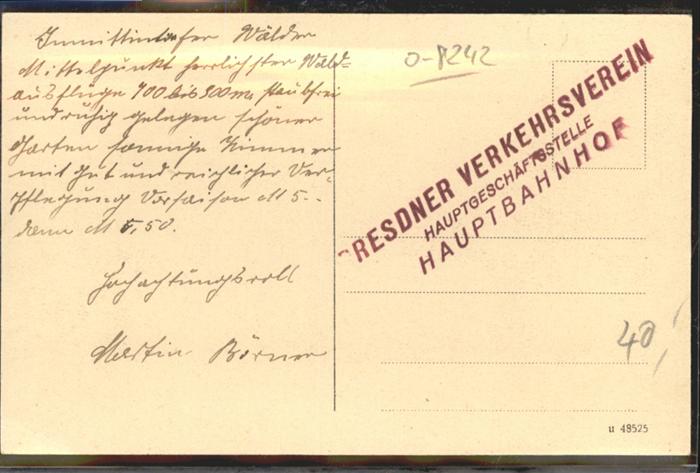 Inmitten tiefer Wälder
Mittelpunkt herrlichster Wald=
ausflüge 700 bis 900 m, staubfrei
und ruhig gelegen schöner
Garten sonnige Zimmer
mit gut und reichlicher Ver-
pflegung Vorsaison M 5.-
dann M 5,50.
Hochachtungsvoll
Martin Börner
O-8242
DRESDNER VERKEHRSVEREIN
HAUPTGESCHÄFTSSTELLE
HAUPTBAHNHOF
40,
u 48525